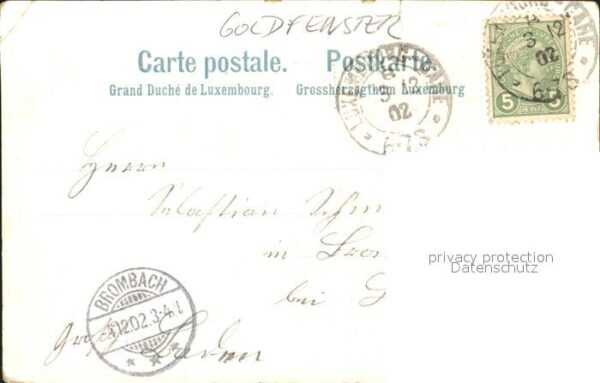 GOLDFENSTER
Carte postale. Postkarte.
Grand Duché de Luxembourg. Grossherzogthum Luxemburg
LUXEMBOURG-GARE
3 12
02
6-7S
5 5
Herrn
Sebastian Schm
in Brom
bei
Baden
BROMBACH
12.02.3-4.
privacy protection
Datenschutz